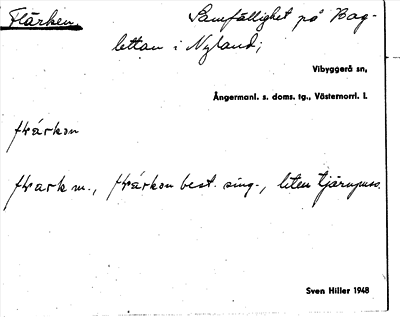 Flärken, Samfällighet på Bag-
lettan i Nyland;
Vibyggerå sn,
Ångermanl. s. doms. tg., Västernorrl. l.
flärkon
flark m., flärkon best. sing., liten tjärnpuss.
Sven Hiller 1948